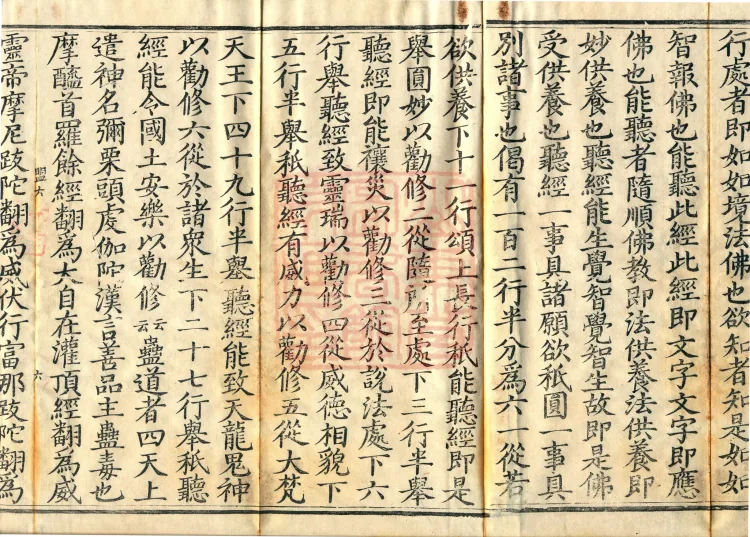 行處者即如如境法佛也欲知者知是如如
智報佛也能聽此經此經即文字文字即應
佛也能聽者隨順佛教即法供養法供養即
妙供養也聽經能生覺智覺智生故即是佛
受供養也聽經一事具諸願欲秖圓一事具
別諸事也偈有一百二行半分為六一從若
欲供養下十一行頌上長行秖能聽經即是
舉圓妙以勸修二從隨所至處下三行半舉
聽經即能禳災以勸修三從於說法處下六
行舉聽經致靈瑞以勸修四從威德相貌下
五行半舉秖聽經有威力以勸修五從大梵
天王下四十九行半舉聽經能致天龍鬼神
以勸修六從於諸眾生下二十七行舉秖聽
經能令國土安樂以勸修云云蠱道者四天上
遣神名彌栗頭虔伽陀漢言善品主蠱毒也
摩醯首羅餘經翻為大自在灌頂經翻為威
盟六
六
靈帝摩尼跋陀翻為威伏行富那跋陀翻為